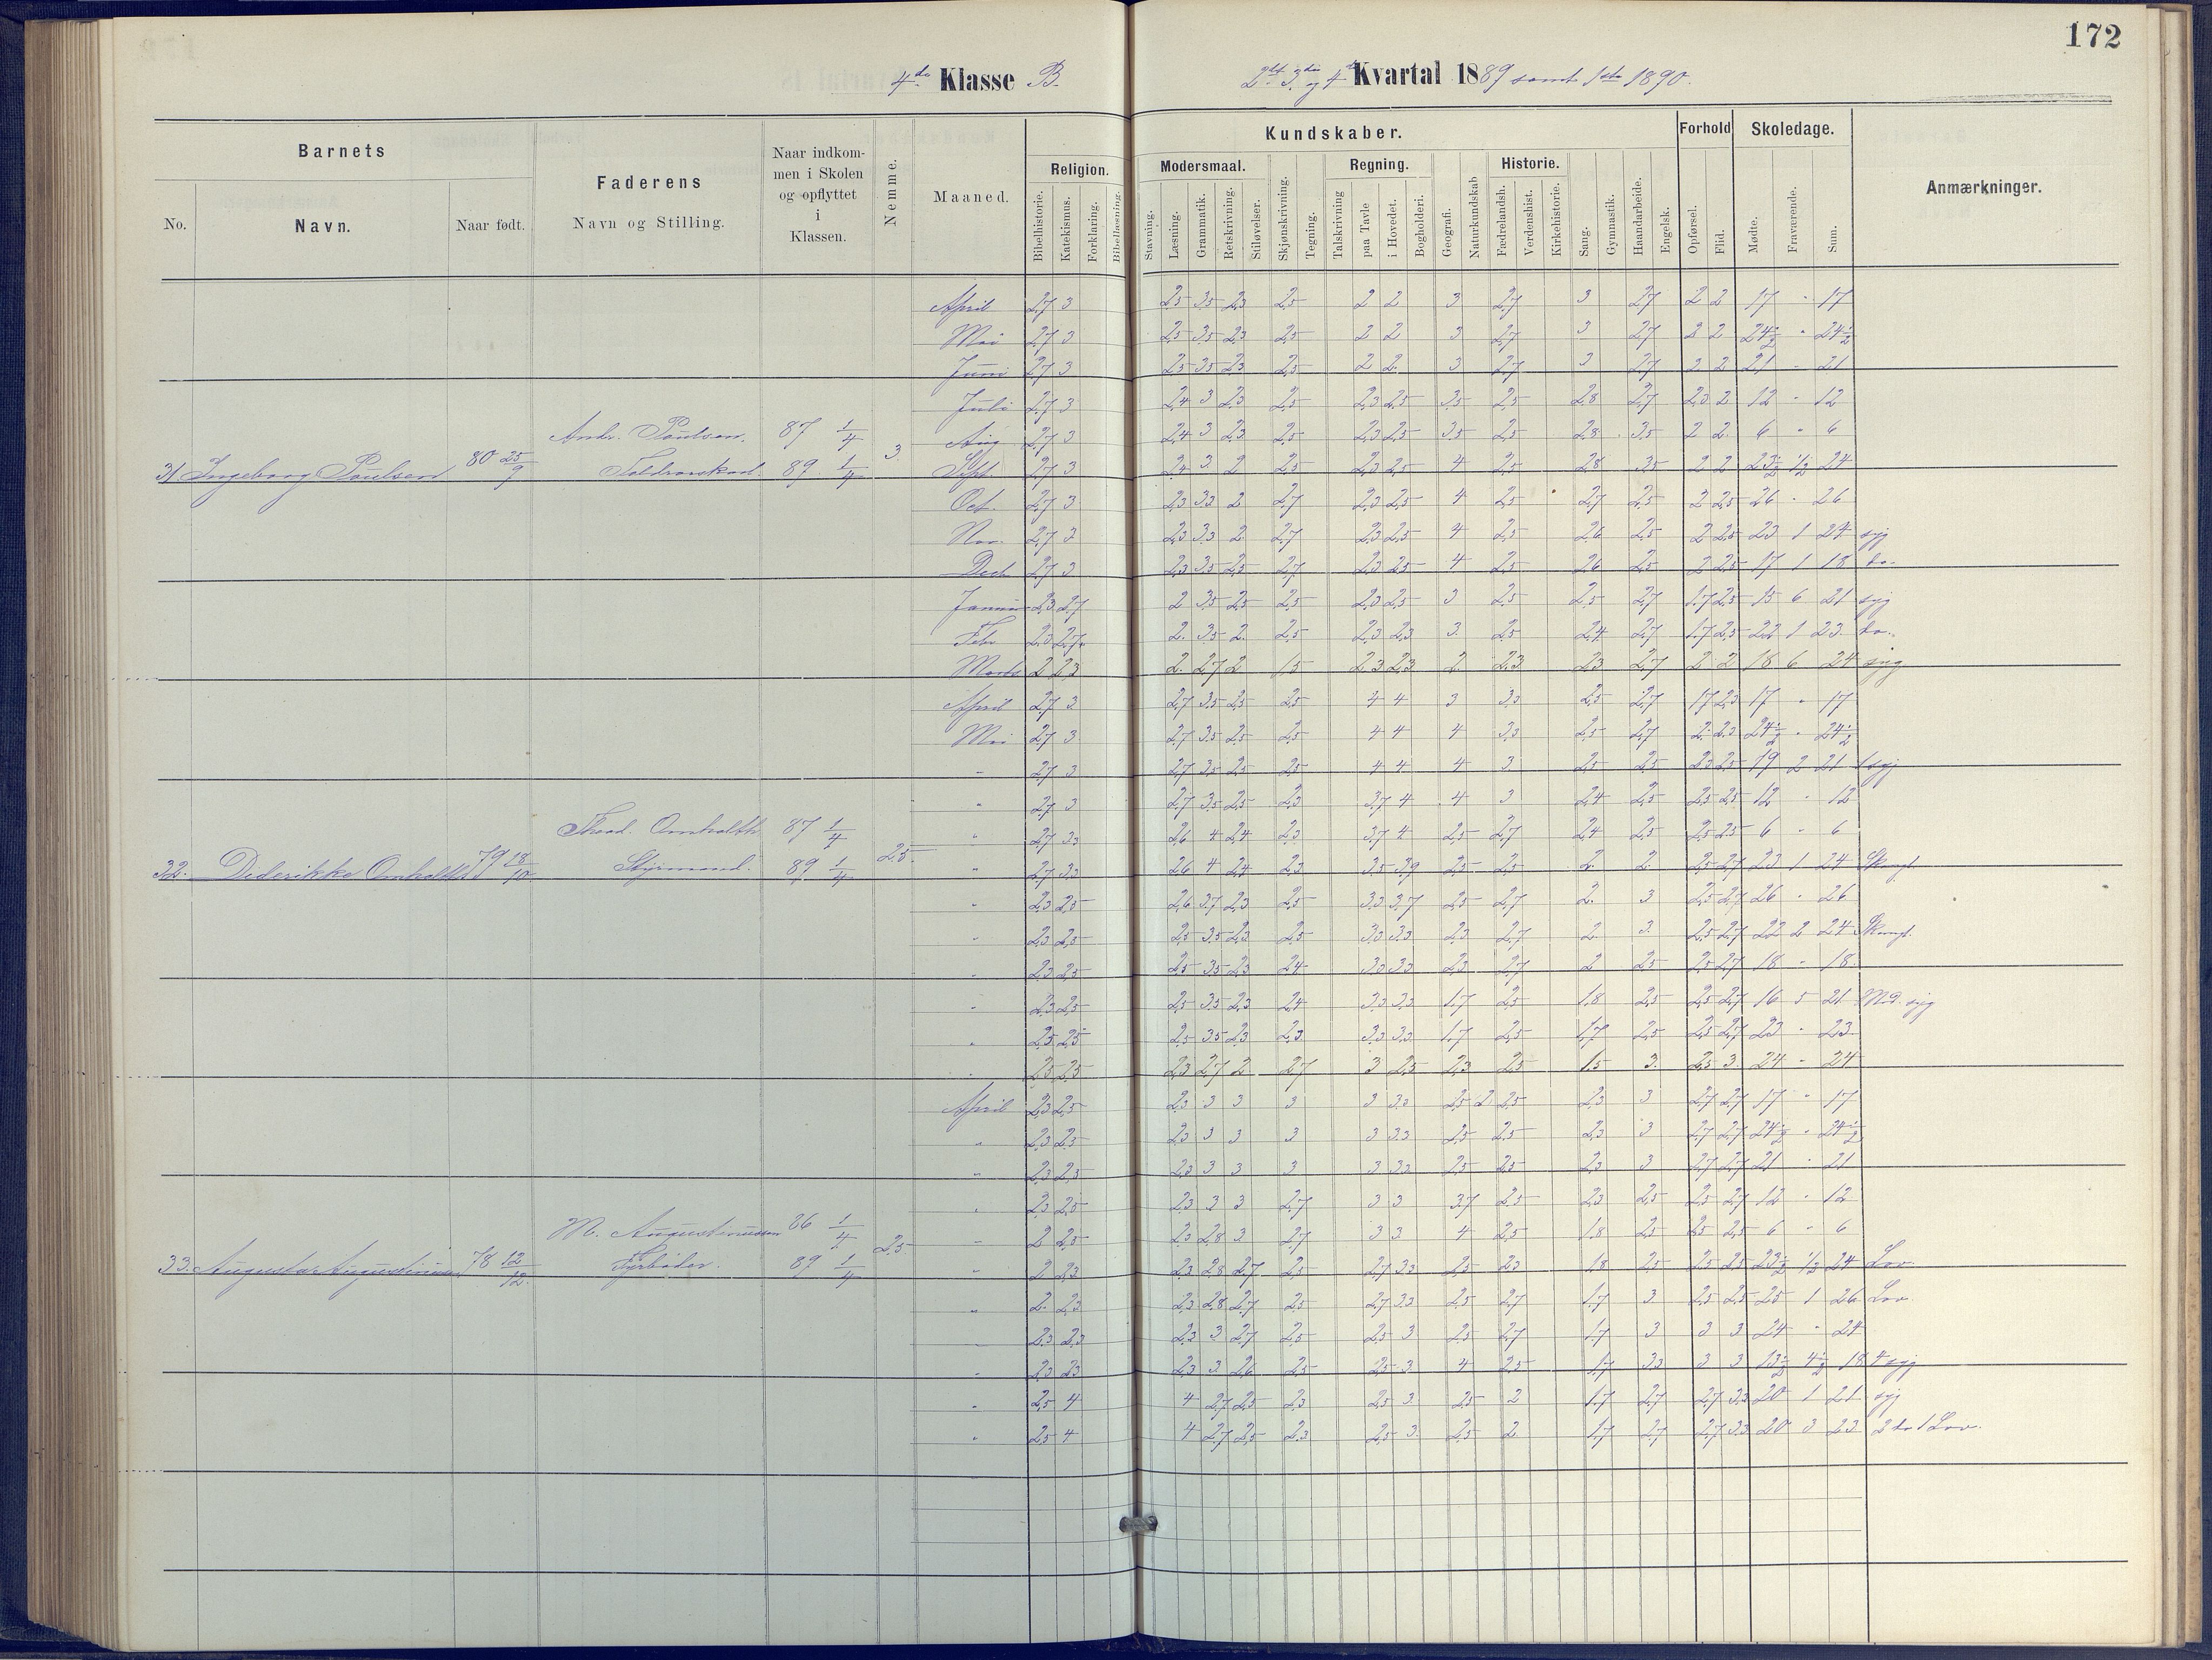 172
4de Klasse B. 2det 3die og 4de Kvartal 1889 samt 1ste 1890.
Barnets Faderens Naar indkommen i Skolen og opflyttet i Klassen. Nemme. Maaned. Kundskaber. Forhold Skoledage. Anmærkninger.
No. Navn. Naar født. Navn og Stilling. Religion. Modersmaal. Regning. Historie.
Bibelhistorie. Katekismus. Forklaring. Bibellæsning. Stavning. Læsning. Grammatik. Retskrivning. Stiløvelser. Skjønskrivning. Tegning. Talskrivning paa Tavle i Hovedet. Bogholderi. Geografi. Naturkundskab Fædrelandsh. Verdenshist. Kirkehistorie. Sang. Gymnastik. Haandarbeide. Engelsk. Opførsel. Flid. Mødte. Fraværende. Sum.
April 2,7 3 2,5 3,5 2,3 2,5 2 2 3 2,7 3 2,7 2 2 17 - 17
Mai 2,7 3 2,5 3,5 2,3 2,5 2 2 3 2,7 3 2,7 2 2 24½ - 24½
Juni 2,7 3 2,5 3,5 2,3 2,5 2 2 3 2,7 3 2,7 2 2 21 - 21
Juli 2,7 3 2,4 3 2,3 2,5 2,3 2,5 3,5 2,5 2,8 2,7 2,3 2 12 - 12
Andr. Paulsen. 87 1/4 Aug 2,7 3 2,4 3 2,3 2,5 2,3 2,5 3,5 2,5 2,8 3,5 2 2 6 - 6
31 Ingeborg Paulsen 80 25/9 Toldroerskarl. 89 1/4 3 Sept 2,7 3 2,4 3 2 2,5 2,3 2,5 4 2,5 2,8 3,5 2 2 23½ ½ 24
Oct. 2,7 3 2,3 3,3 2 2,7 2,3 2,5 4 2,5 2,7 2,5 2 2,5 26 - 26
Nov. 2,7 3 2,3 3,3 2 2,7 2,3 2,5 4 2,5 2,6 2,5 2 2,5 23 1 24 syg
Dech 2,7 3 2,3 3,5 2,5 2,7 2,3 2,5 4 2,5 2,6 2,5 2 2,5 17 1 18 do.
Januar 2,3 2,7 2 3,5 2,5 2,5 2,3 2,5 3 2,5 2,5 2,7 1,7 2,5 15 6 21 syg
Febr 2,3 2,7 2. 3,5 2. 2,5 2,3 2,3 3. 2,5 2,4 2,7 1,7 2,5 22 1 23. do.
Marts 2 2,3 2. 2,7 2 1,5 2,3 2,3 2. 2,3 2,3 2,7 2 2 18 6 24 syg
April 2,7 3 2,7 3,5 2,5 2,5 4 4 3 3,3 2,5 2,7 1,7 2,3 17 - 17
Mai 2,7 3 2,7 3,5 2,5 2,5 4 4 4 3,3 2,5 2,7 2 2,3 24½ - 24½
" 2,7 3 2,7 3,5 2,5 2,5 4 4 4 3 2,5 2,5 2,3 2,5 19 2 21 1 syg
" 2,7 3 2,7 3,5 2,5 2,3 3,7 4 4 3 2,4 2,5 2,5 2,5 12 - 12
Thood. Omholth 87 1/4 " 2,7 3,3 2,6 4 2,4 2,3 3,7 4 2,5 2,7 2,4 2,5 2,5 2,5 6 - 6
32. Dederikke Omholth 79 18/10 Styrmand. 89 1/4 2,5. " 2,7 3,3 2,6 4 2,4 2,3 3,5 3,9 2,5 2,5 2 2 2,5 2,7 23 1 24
" 2,3 2,5 2,6 3,7 2,3 2,5 3,3 3,7 2,5 2,7 2. 3 2,5 2,7 26 - 26
" 2,3 2,5 2,5 3,5 2,3 2,5 3,3 3,3 2,3 2,7 2. 3. 2,5 2,7 22 2 24
" 2,3 2,5 2,5 3,5 2,3 2,4 3,3 3,3 2,3 2,7 2 2,5 2,5 2,7 18 - 18
" 2,3 2,5 2,5 3,5 2,3 2,4 3,3 3,3 1,7 2,5 1,8 2,5 2,5 2,7 16 5 21 syg
" 2,5 2,5 2,5 3,5 2,3 2,3 3,3 3,3 1,7 2,5 1,7 2,5 2,5 2,7 23 - 23
" 2,5 2,5 2,3 2,7 2 2,7 3 2,5 2,3 2,5 1,5 3. 2,5 3. 24 - 24
April 2,3 2,5 2,3 3 3 3 3 3,3 2,5 2 2,5 2,3 3 2,7 2,7 17 - 17
" 2,3 2,5 2,3 3 3 3 3 3,3 2,5 2,5 2,3 3 2,7 2,7 24½ - 24½
" 2,3 2,5 2,3 3 3 3 3 3,3 2,5 2,5 2,3 3 2,7 2,7 21 - 21
" 2,3 2,5 2,3 3 3 2,7 3 3 3,7 2,5 2,3 2,5 2,5 2,7 12 - 12
M. Augustinussen 86 1/4 " 2 2,5 2,3 2,8 3 2,7 3 3 4 2,5 1,8 2,5 2,5 2,5 6 - 6
33. Augusta Augustinussen 78 12/12 Fyrbøder. 89 1/4 2,5. " 2 2,3 2,3 2,8 2,7 2,5 2,7 3,3 2,5 2,3 1,8 2,5 2,5 2,5 23½ ½ 24 Lov.
" 2. 2,3 2,3 2,8 2,7 2,5 2,7 3,3 2,5 2,7 1,7 3. 2,5 2,5 25 1 26 Lov.
" 2,3 2,3 2,3 3 2,7 2,5 2,5 3 2,5 2,7 1,7 3 3 3 24 - 24
" 2,3 2,3 2,3 3 2,6 2,5 2,5 3. 4 2,5 1,7 3,3 3 3 13½ 4½ 18 4 syg
" 2,5 4 4 2,7 2,5 2,3 2,5 3. 2,5 2 1,7 2,7 2,7 3,3 20 1 21 syg
" 2,5 4 4 2,7 2,5 2,3 2,5 3. 2,5 2. 1,7 2,7 2,7 3,3 20 3 23 2 do 1 Lov.